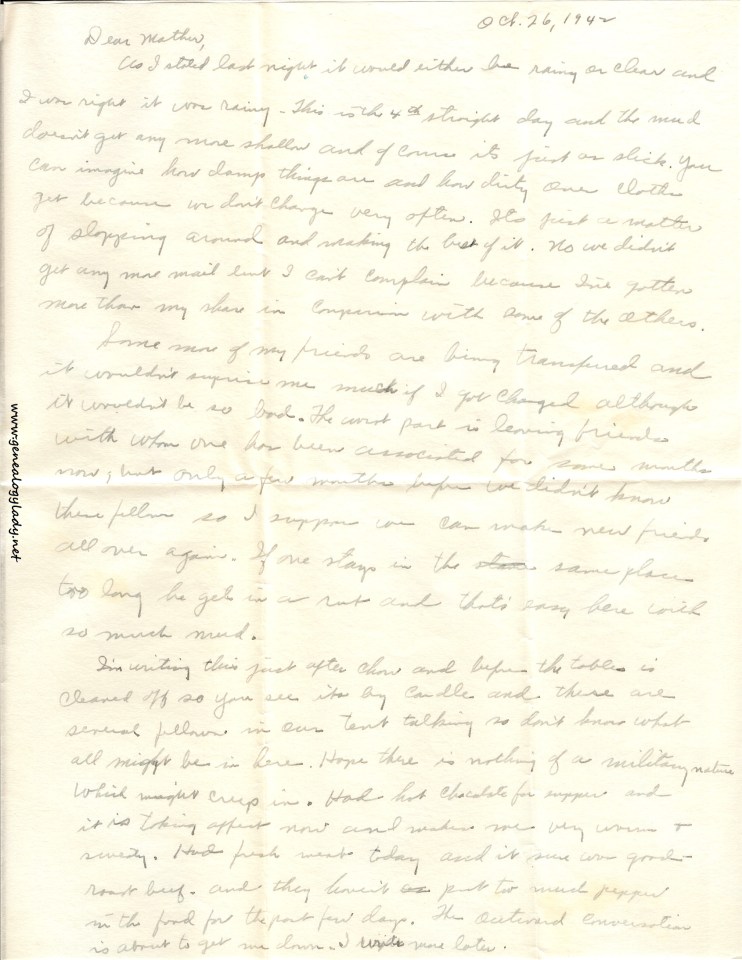 Oct. 26, 1942
Dear Mother,
As I stated last night it would either be rainy or clear and
I was right it was rainy. This is the 4th straight day and the mud
doesn't get any more shallow and of course its just as slick. You
can imagine how damp things are and how dirty over cloths
get because we don't change very often. Its just a matter
of slopping around and making the best of it. No we didn't
get any more mail but I can't complain because I've gotten
more than my share in comparison with some of the others.
Some more of my friends are being transferred and
it wouldn't suprise me much if I got changed although
it wouldn't be so bad. The worst part is leaving friends
with whom one has been associated for some months
now, but only a few months before we didn't know
these fellows so I suppose we can make new friends
all over again. If one stays in the same place
too long he gets in a rut and that's easy here with
so much mud.
I'm writing this just after chow and before the tables is
cleared off so you see its by candle and there are
several fellows in our tent talking so don't know what
all might be in here. Hope there is nothing of a military nature
which might creep in. Had hot chocolate for supper and
it is taking affect now and makes me very warm &
sweaty. Had fresh meat today and it sure was good -
roast beef. and they haven't put too much pepper
in the food for the past few days. The outward conversation
is about to get me down. I write more later.
www.genealogylady.net